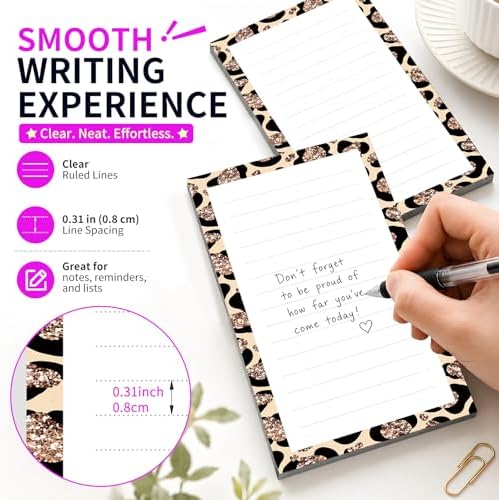 SMOOTH
WRITING
EXPERIENCE
★ Clear. Neat. Effortless. ★
Clear
Ruled Lines
0.31 in (0.8 cm)
Line Spacing
Great for
notes, reminders,
and lists
0.31inch
0.8cm
Don't forget
to be proud of
how far you've
come today!